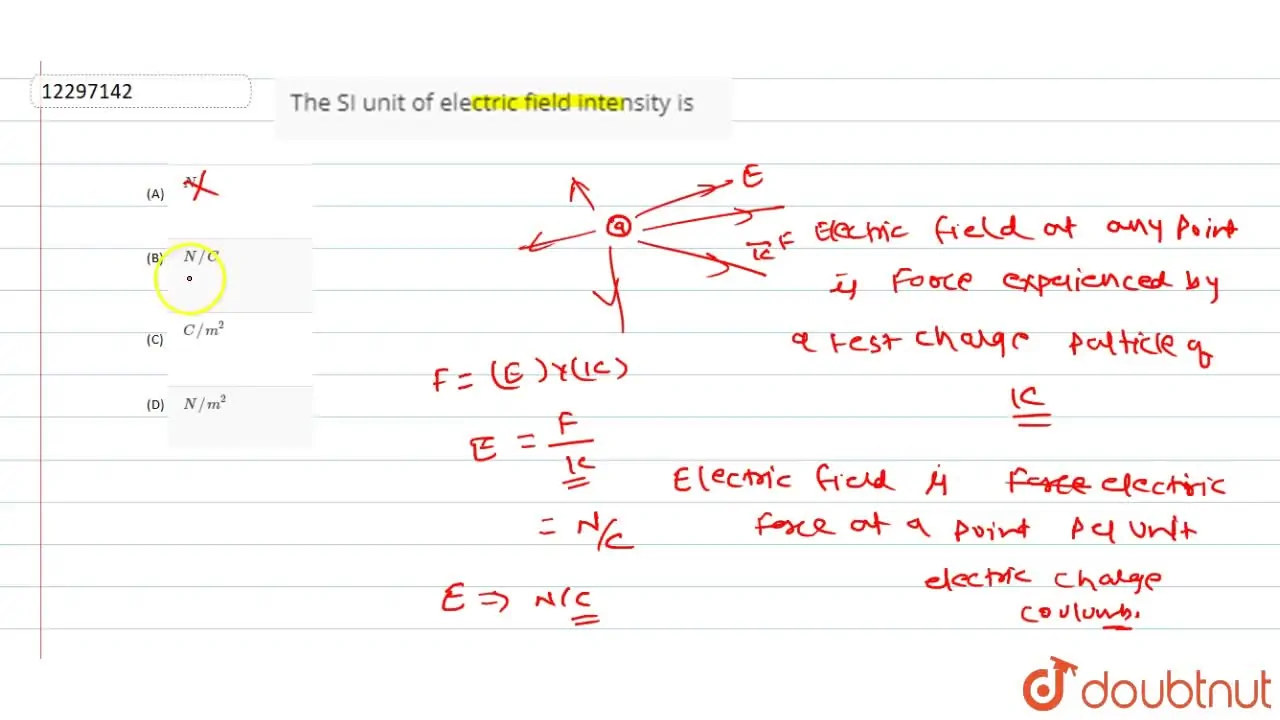 12297142
The SI unit of electric field intensity is
(A) N
(B) N/C
(C) C/m²
(D) N/m²
E
q
F
1C
Electric field at any point
is Force experienced by
a test charge particle of
1C
F = (E) x (1C)
E = F/1C
= N/C
E ⇒ N/C
Electric field is Force electric
force at a point per unit
electric charge
coulumb.
doubtnut